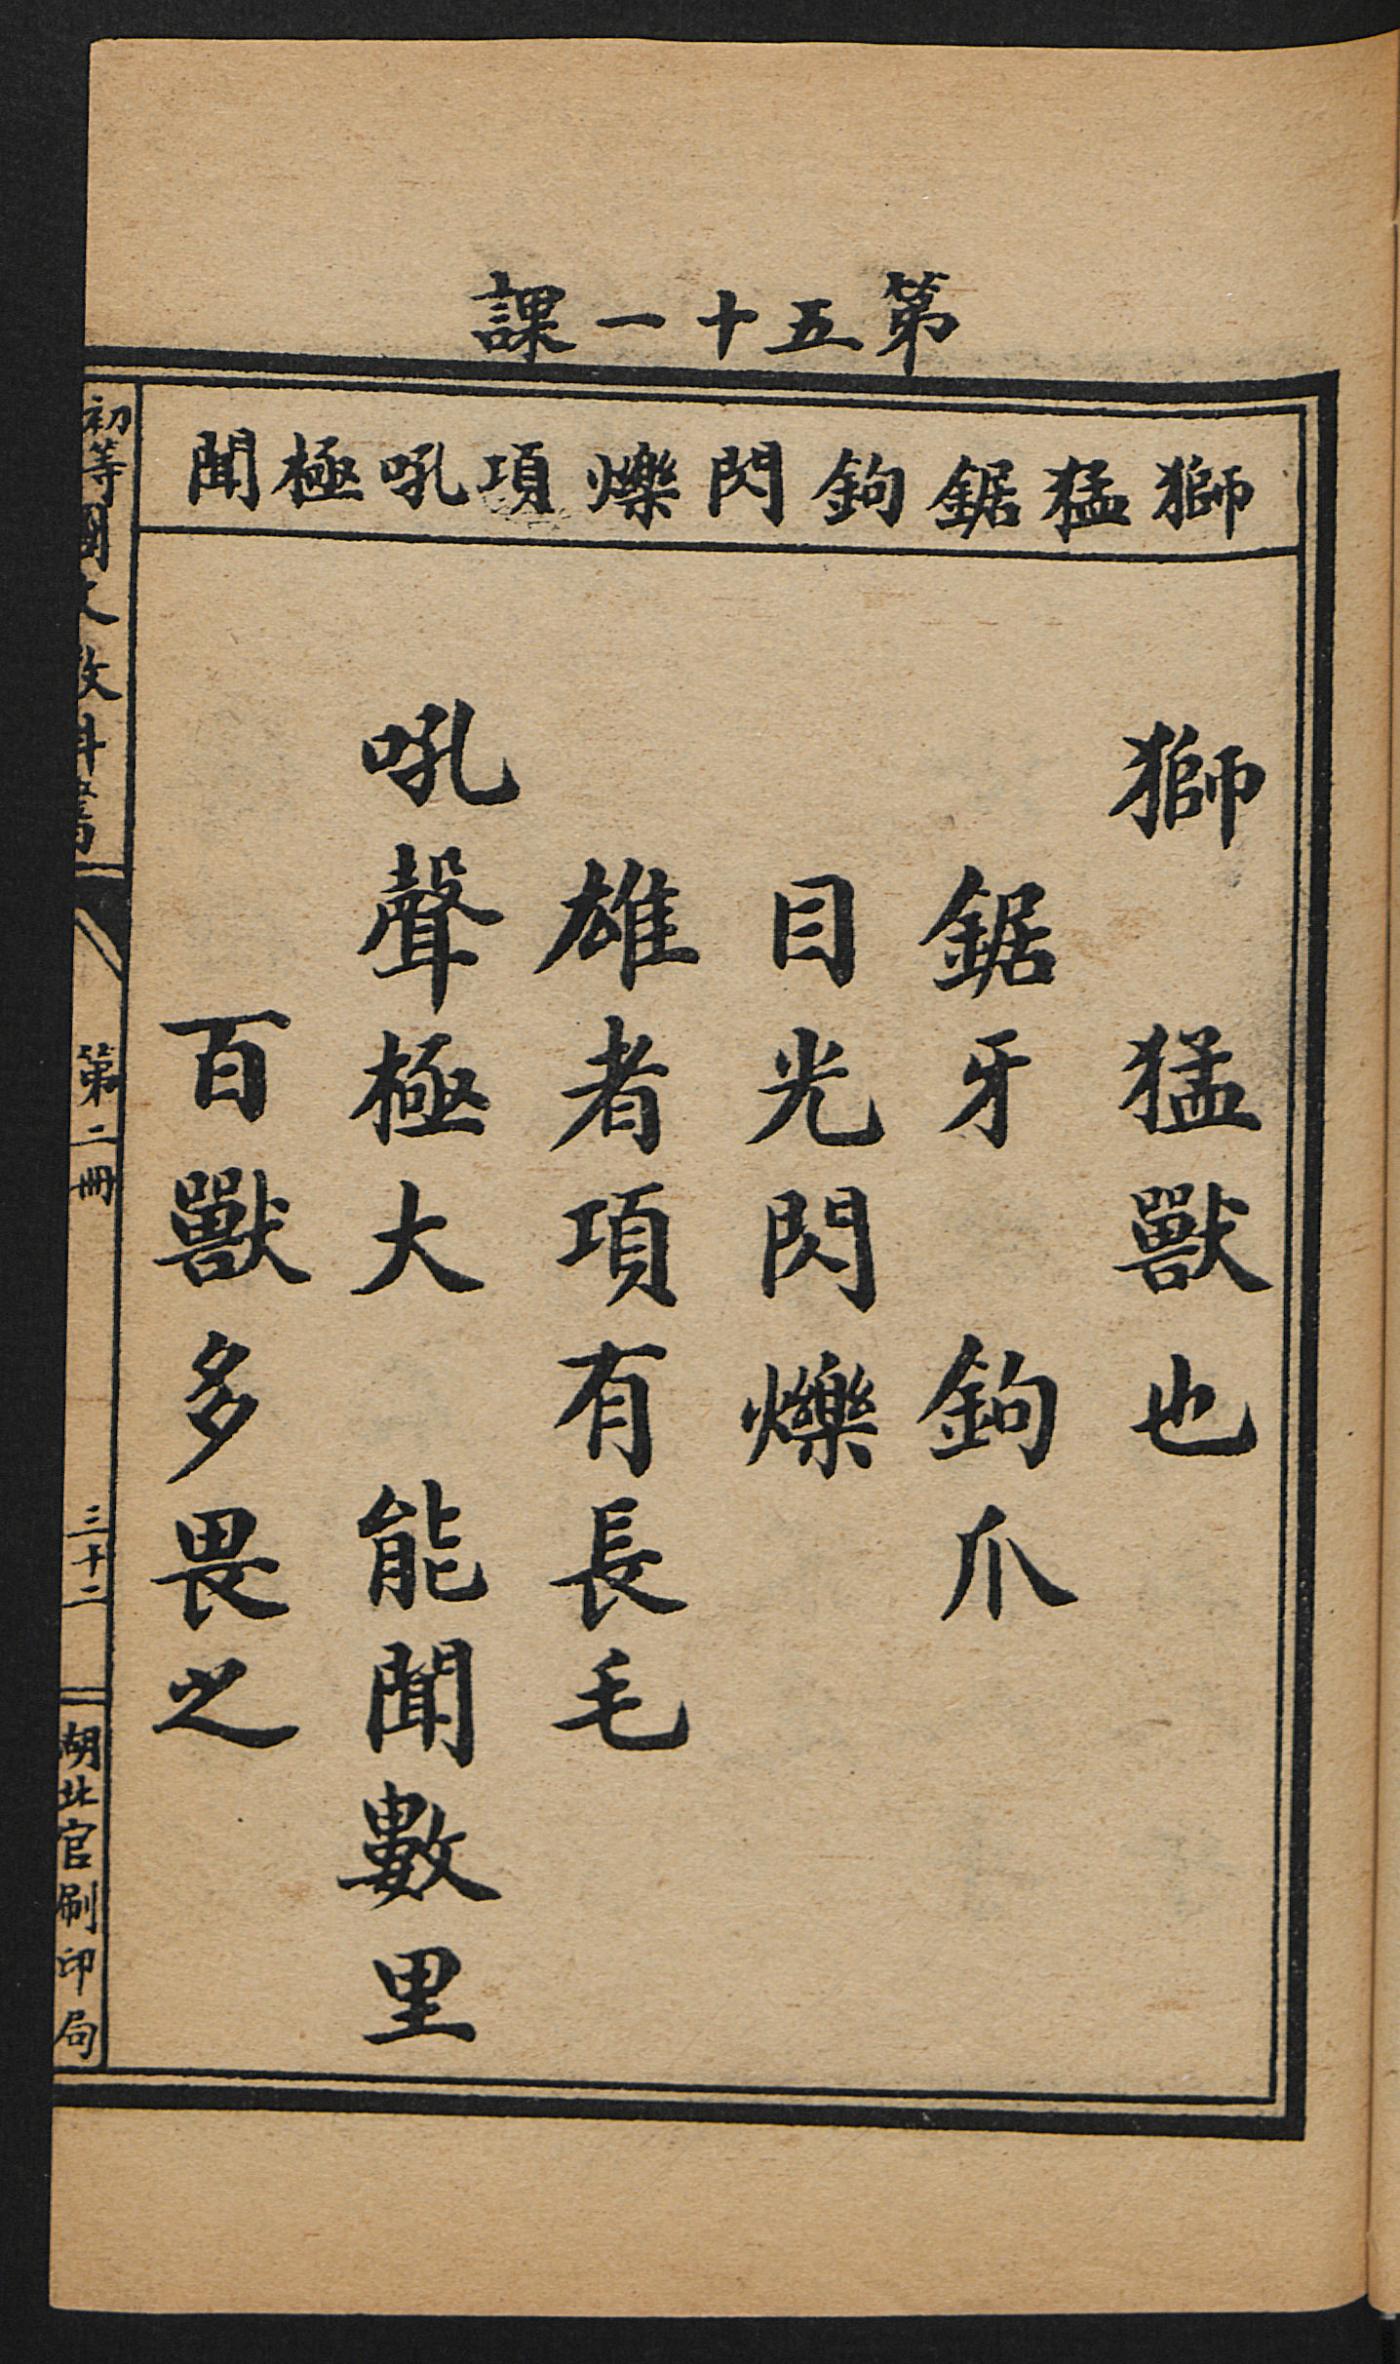 第五十一課
獅猛鋸鉤閃爍項吼極聞
獅 猛獸也
鋸牙 鉤爪
目光閃爍
雄者項有長毛
吼聲極大 能聞數里
百獸多畏之
初等國文教科書 第二冊 三十二 湖北官刷印局